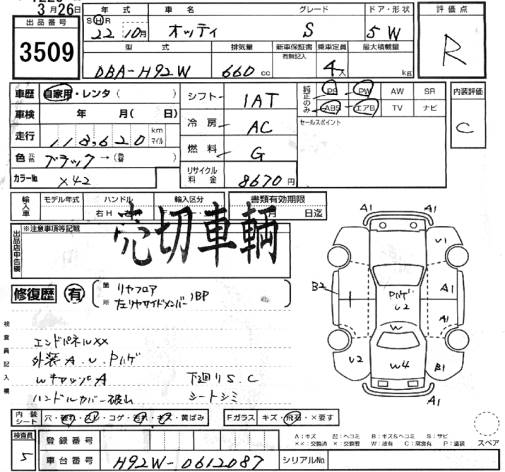 3月26日
出品番号 3509
年式 SHR 22 10月
車名 オッティ
グレード S
ドア・形状 5W
評価点 R
型式 DBA-H92W
排気量 660 cc
新車保証書 有無記入
乗車定員 4人
最大積載量 kg
車歴 自家用・レンタ( )
車検 年 月( 日)
走行 118,620 km マイル
色 元色 ブラック→(替 )
カラー№ X42
シフト 1AT
冷房 AC
燃料 G
リサイクル料金 8670円
純正のみ PS PW AW SR
ABS エアB TV ナビ
セールスポイント
内装評価 C
輸入車 モデル年式 ハンドル 右H 輸入区分
書類有効期限 月 日迄
出品店申告欄 ※注意事項等記載
売切車輌
修復歴 有 箇所 リヤフロア
左リヤサイドメンバー)BP
検査員記入欄
エンドパネルXX
外装A.U.Pハゲ
WキャップA 下廻りS.C
ハンドルカバー破れ シートシミ
A1 A1
U1
B2 Pハゲ U2 A1
A1
W
U2 W4 B1
A1
内装シート 穴・切れ・コゲ・キズ・黄ばみ
Fガラス キズ・飛石・×要す
A：キズ U：ヘコミ B：キズ&ヘコミ S：サビ
××：交換済 ×：交換要 W：波有 C：腐食有 P：塗装
スペア
検査員 5
登録番号
車台番号 H92W-0612087
シリアル№